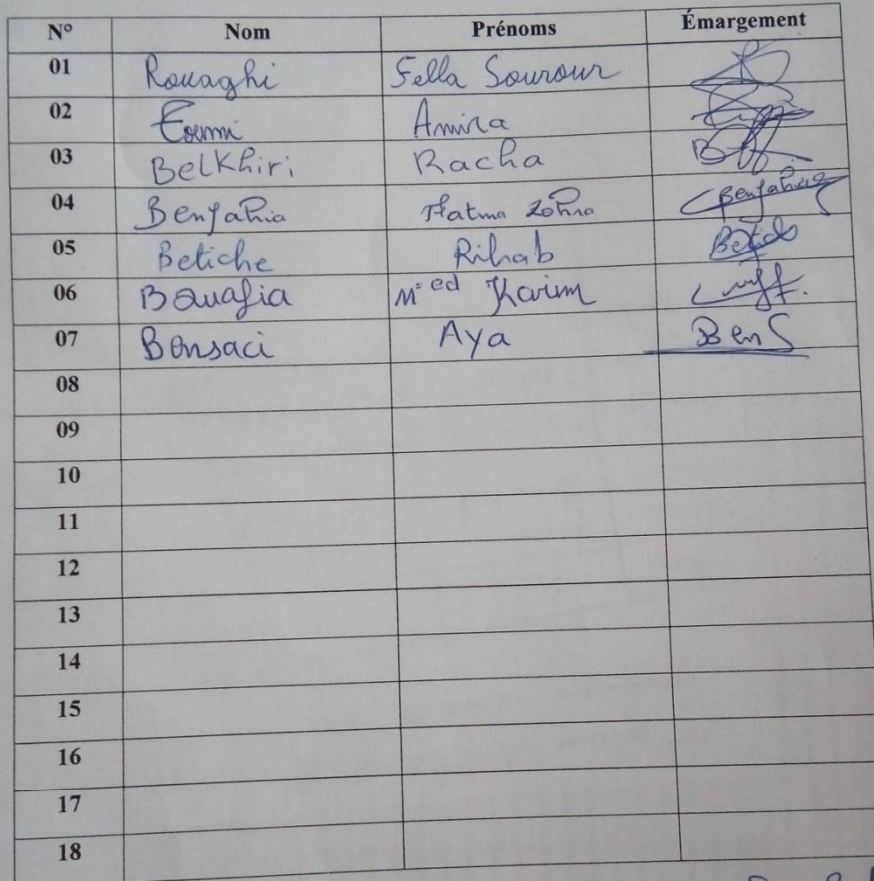 N° Nom Prénoms Émargement
01 Rouaghi Fella Sourour
02 Amira
03 Belkhiri Racha
04 Benyahia Fatma Zohra Benyahia
05 Betiche Rihab
06 Bouafia M=ed Karim
07 Bensaci Aya Ben S
08
09
10
11
12
13
14
15
16
17
18